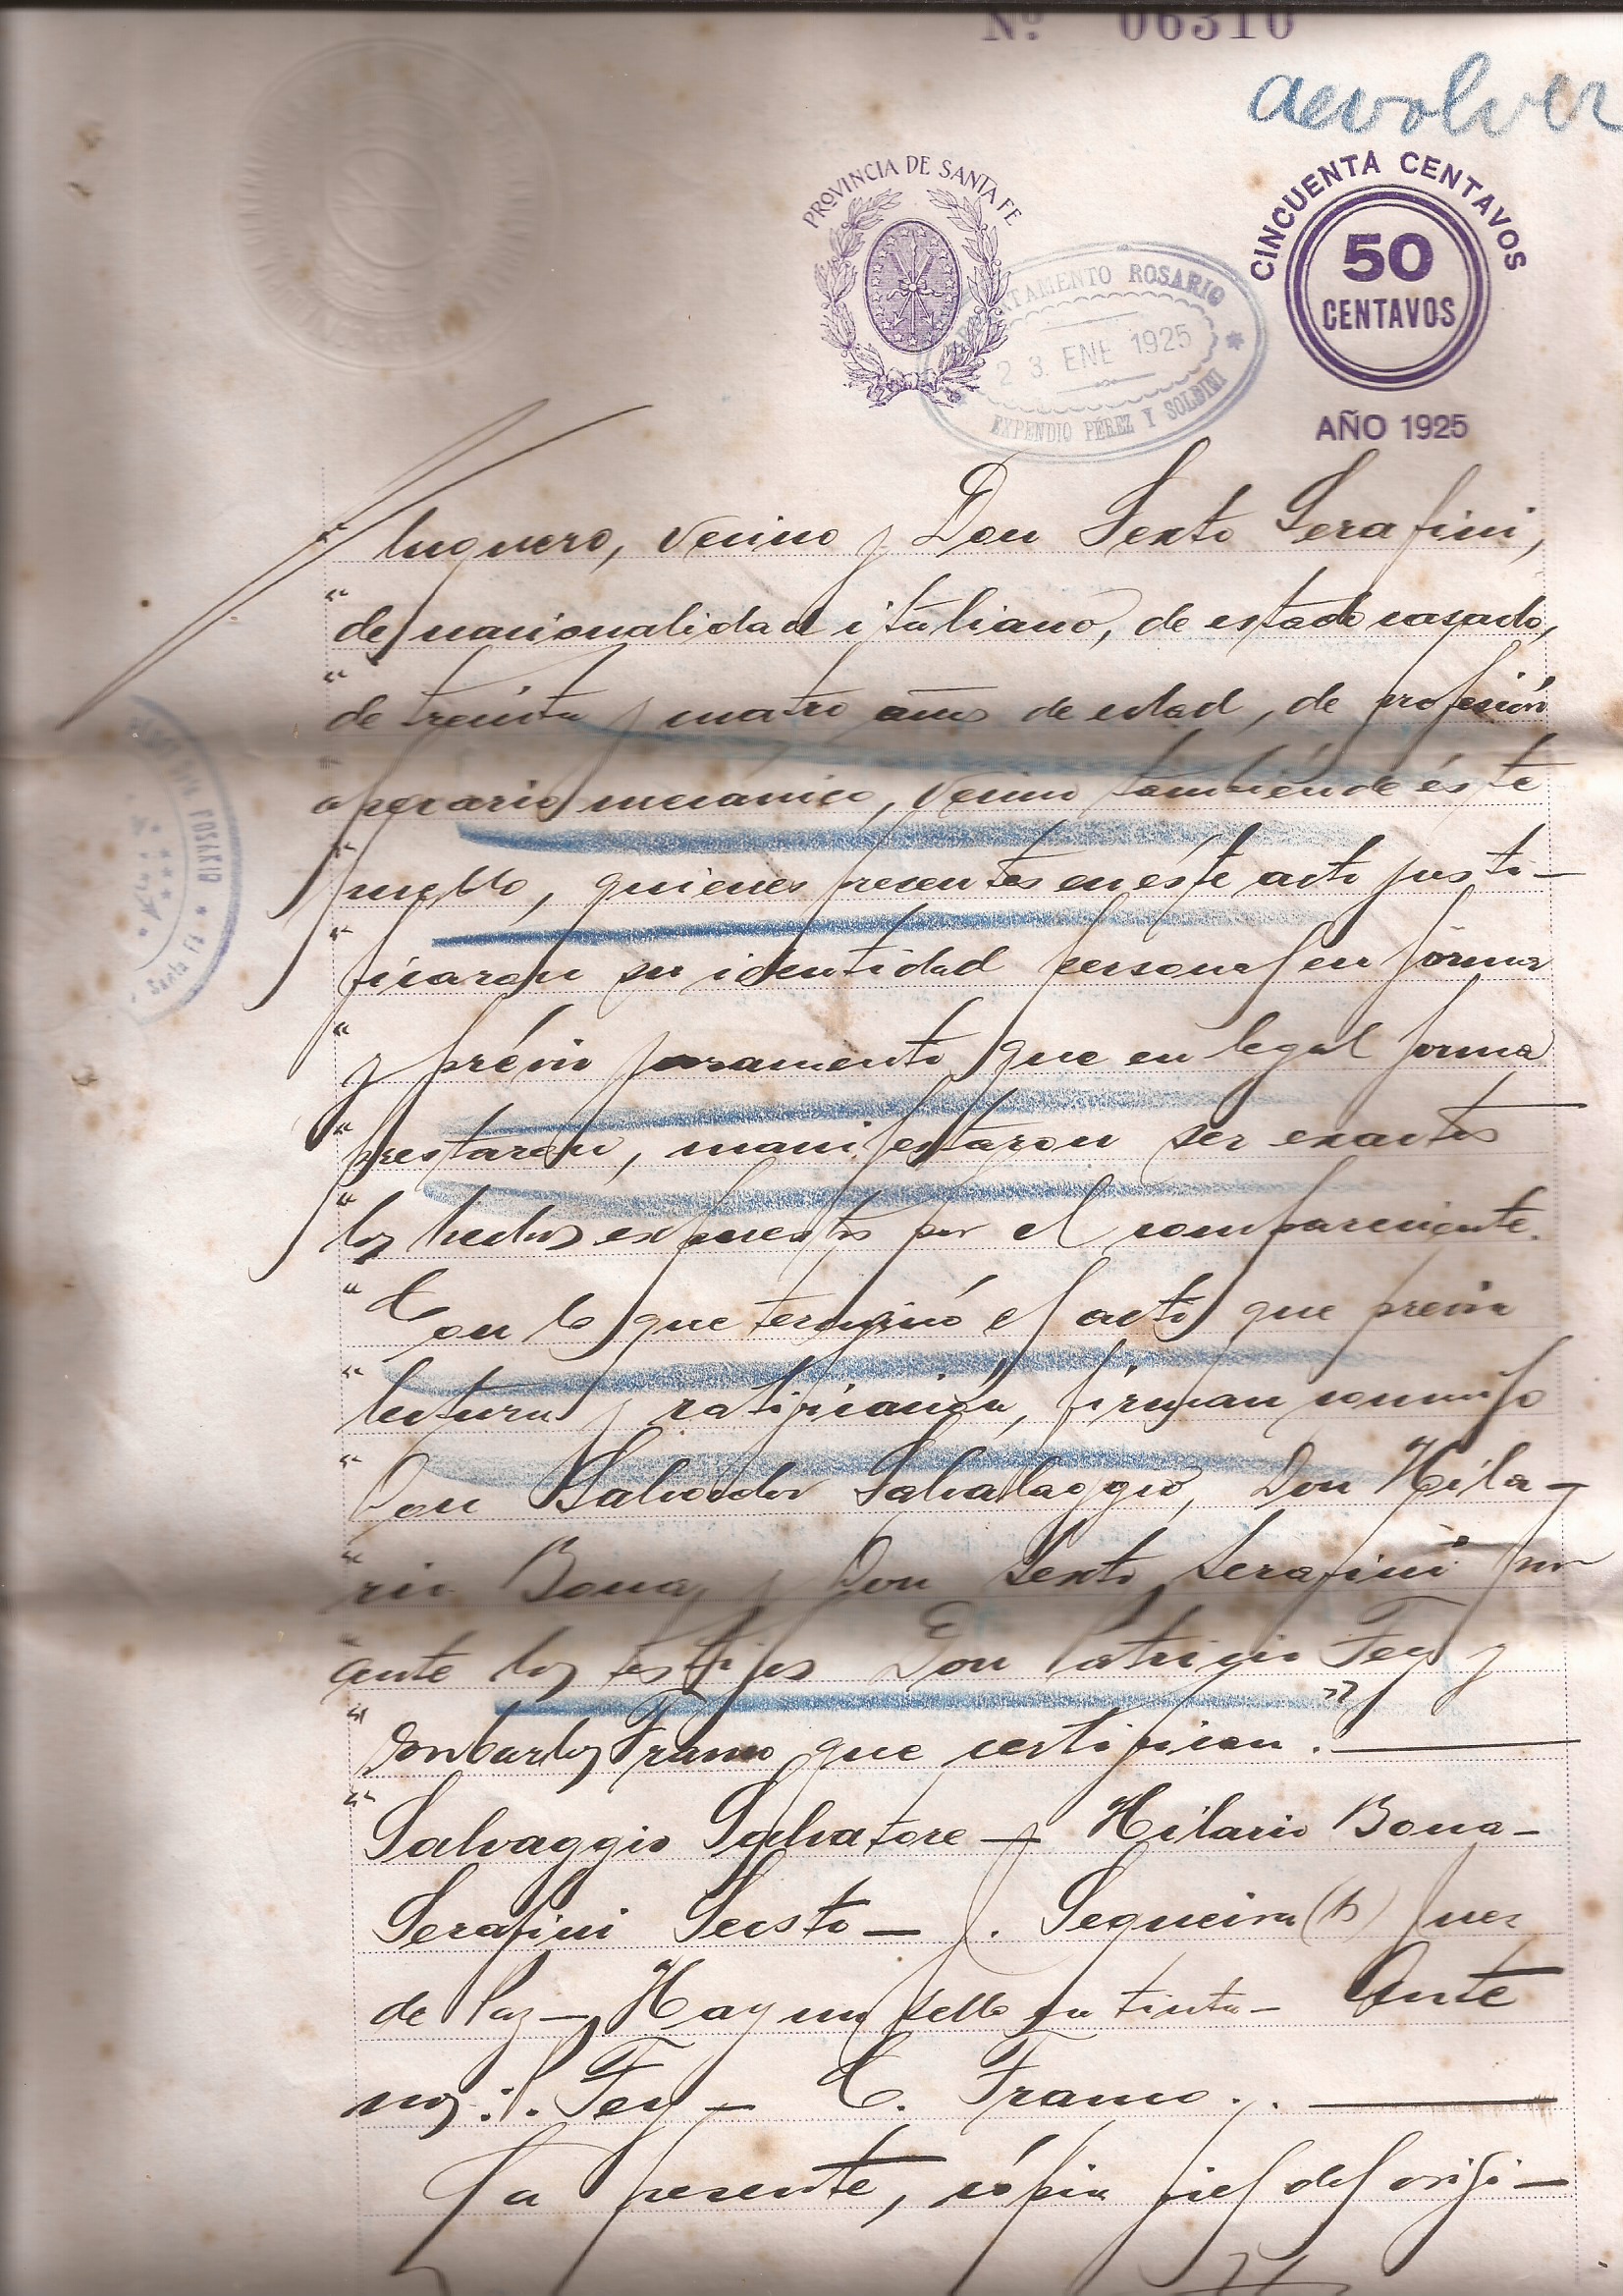 Nº 06310
devolver
PROVINCIA DE SANTA FE
CINCUENTA CENTAVOS
50
CENTAVOS
AÑO 1925
DEPARTAMENTO ROSARIO
23 ENE 1925
EXPENDIO PÉREZ Y SOLDINI
ROSARIO
Santa Fé
luquero, vecino y Don Sexto Serafini,
"de nacionalidad italiano, de estado casado,
"de treinta y cuatro años de edad, de profesión
"operario mecánico, vecino también de éste
"pueblo, quienes presentes en éste acto justi-
"ficaron su identidad personal en forma
"y prévio juramento que en legal forma
"prestaron, manifestaron ser exactos
"los hechos expuestos por el compareciente.
"Con lo que terminó el acto que previa
"lectura y ratificación, firman conmigo
"Don Salvador Salvalaggio, Don Hila-
"rio Bona y Don Sexto Serafini por
"ante los testigos Don Patricio Fey y
"Don Carlos Franco que certifican."
"Salvaggio Salvatore - Hilario Bona -
Serafini Sesto - J. Sequeira (h) Juez
de Paz - Hay un sello en tinta - Ante
nos: P. Fey - C. Franco.
La presente, cópia fiel del origi-